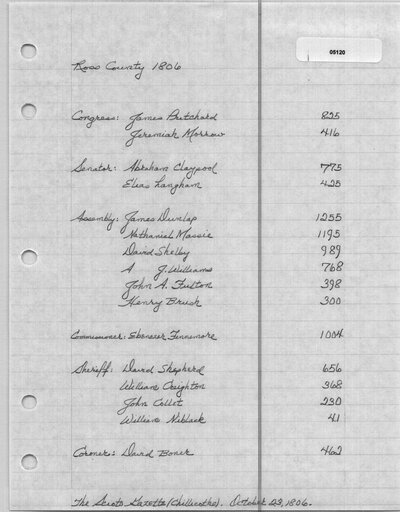 05120
Ross County 1806
Congress: James Pritchard 825
Jeremiah Morrow 416
Senator: Abraham Claypool 775
Elias Langham 425
Assembly: James Dunlap 1255
Nathaniel Massie 1195
David Shelby 989
A J. Williams 768
John A. Fulton 398
Henry Brush 300
Commissioner: Ebenezer Finnemore 1004
Sheriff: David Shepherd 656
William Creighton 368
John Collet 230
William Niblack 41
Coroner: David Boner 462
The Scioto Gazette (Chillicothe). October 23, 1806.